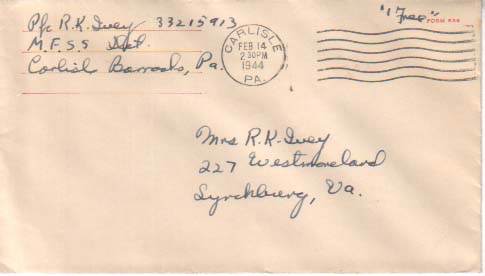 Pfc R.K. Ivey 33215913
M.F.S.S Det.
Carlisle Barracks, Pa.
CARLISLE
FEB 14
2 30PM
1944
PA.
"Free"
Mrs R.K. Ivey
227 Westmoreland
Lynchburg, Va.